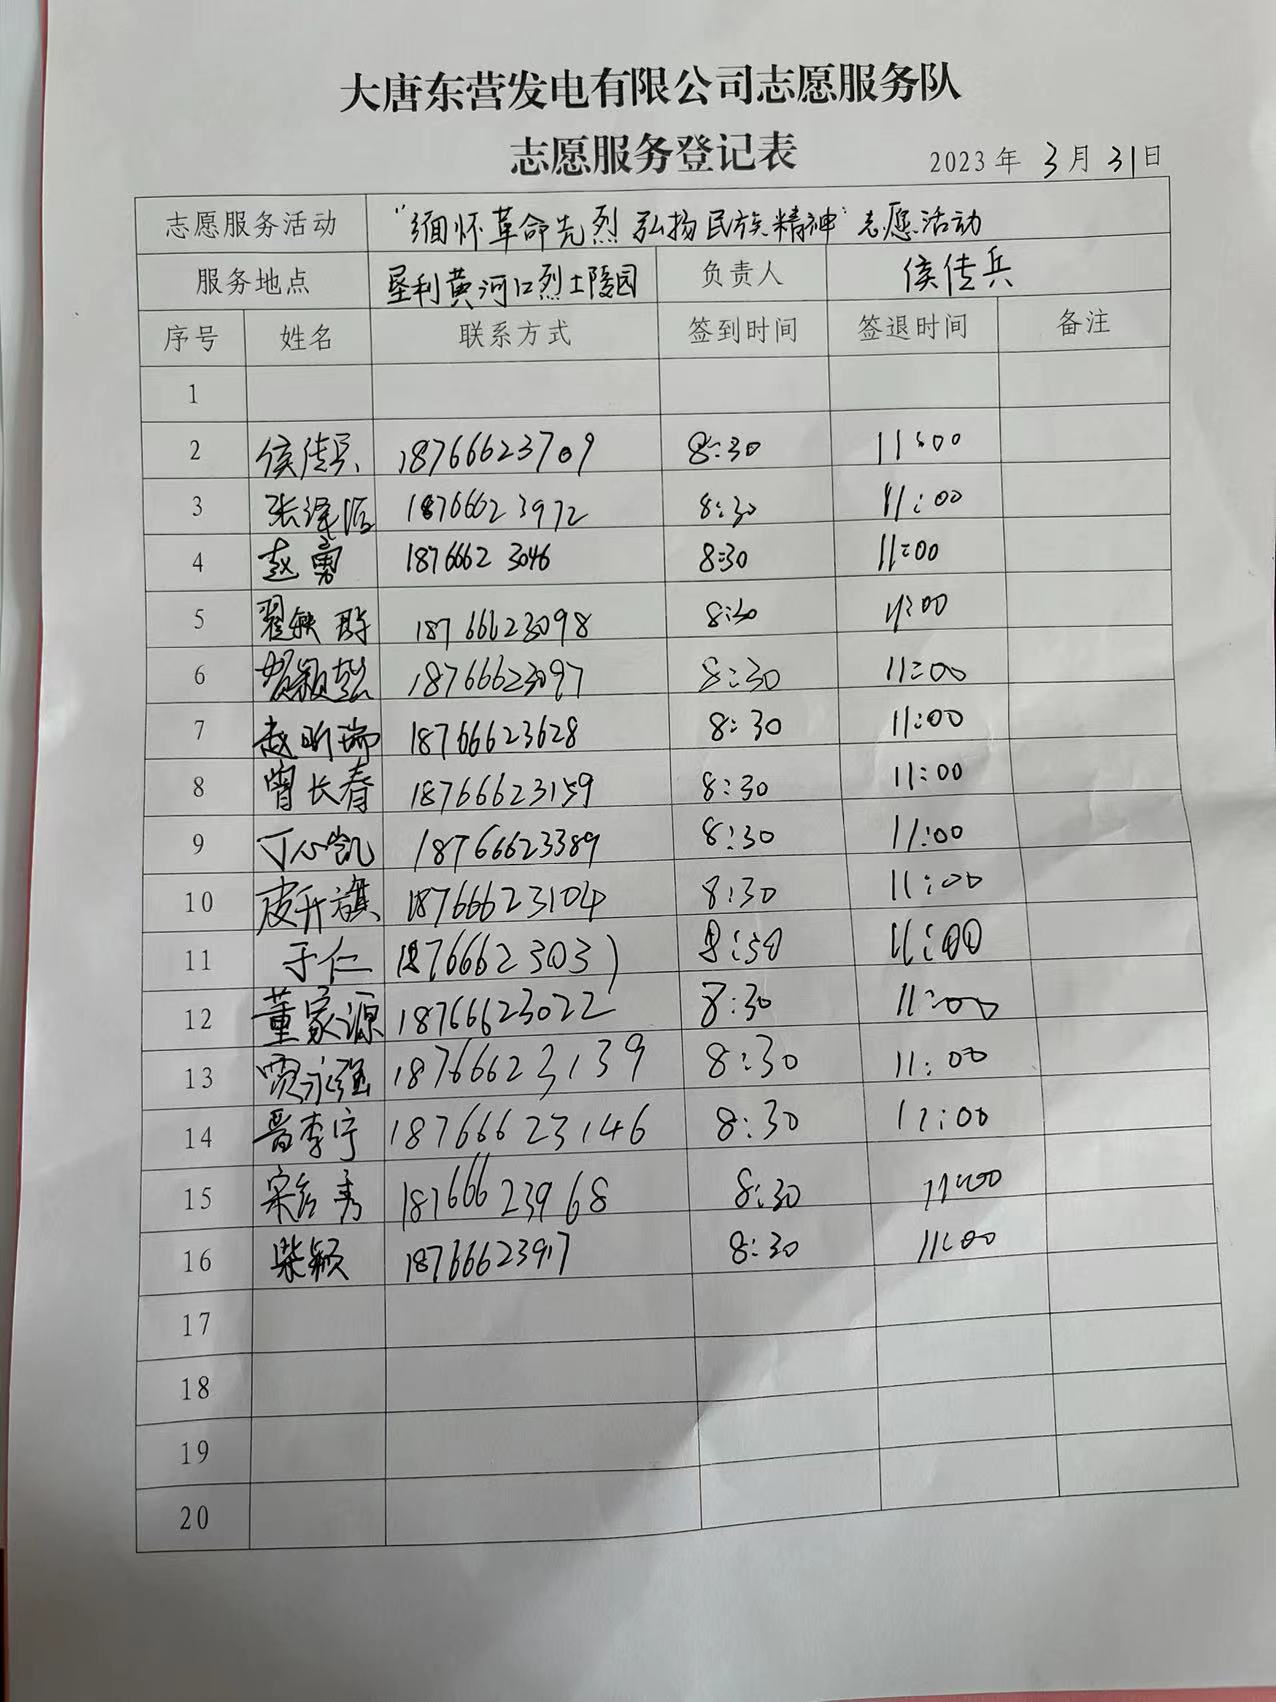 大唐东营发电有限公司志愿服务队
志愿服务登记表
2023年 3月 31日
志愿服务活动 "缅怀革命先烈 弘扬民族精神"志愿活动
服务地点 垦利黄河口烈士陵园 负责人 侯传兵
序号 姓名 联系方式 签到时间 签退时间 备注
1
2 侯传兵 18766623709 8:30 11:00
3 18766623972 8:30 11:00
4 赵勇 18766623046 8:30 11:00
5 18766623098 8:30 11:00
6 18766623097 8:30 11:00
7 赵昕瑞 18766623628 8:30 11:00
8 曾长春 18766623159 8:30 11:00
9 丁心凯 18766623389 8:30 11:00
10 皮开旗 18766623104 8:30 11:00
11 于仁 18766623031 8:30 11:00
12 董家源 18766623022 8:30 11:00
13 贾永强 18766623139 8:30 11:00
14 晋李宁 18766623146 8:30 11:00
15 18766623968 8:30 11:00
16 柴颖 18766623917 8:30 11:00
17
18
19
20